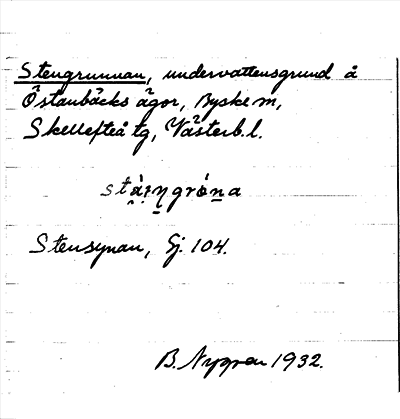 Stengrunnan, undervattensgrund å
Östanbäcks ägor, Byske m,
Skellefteå tg, Västerb. l.
Stensynan, Gj. 104.
B. Nygren 1932.